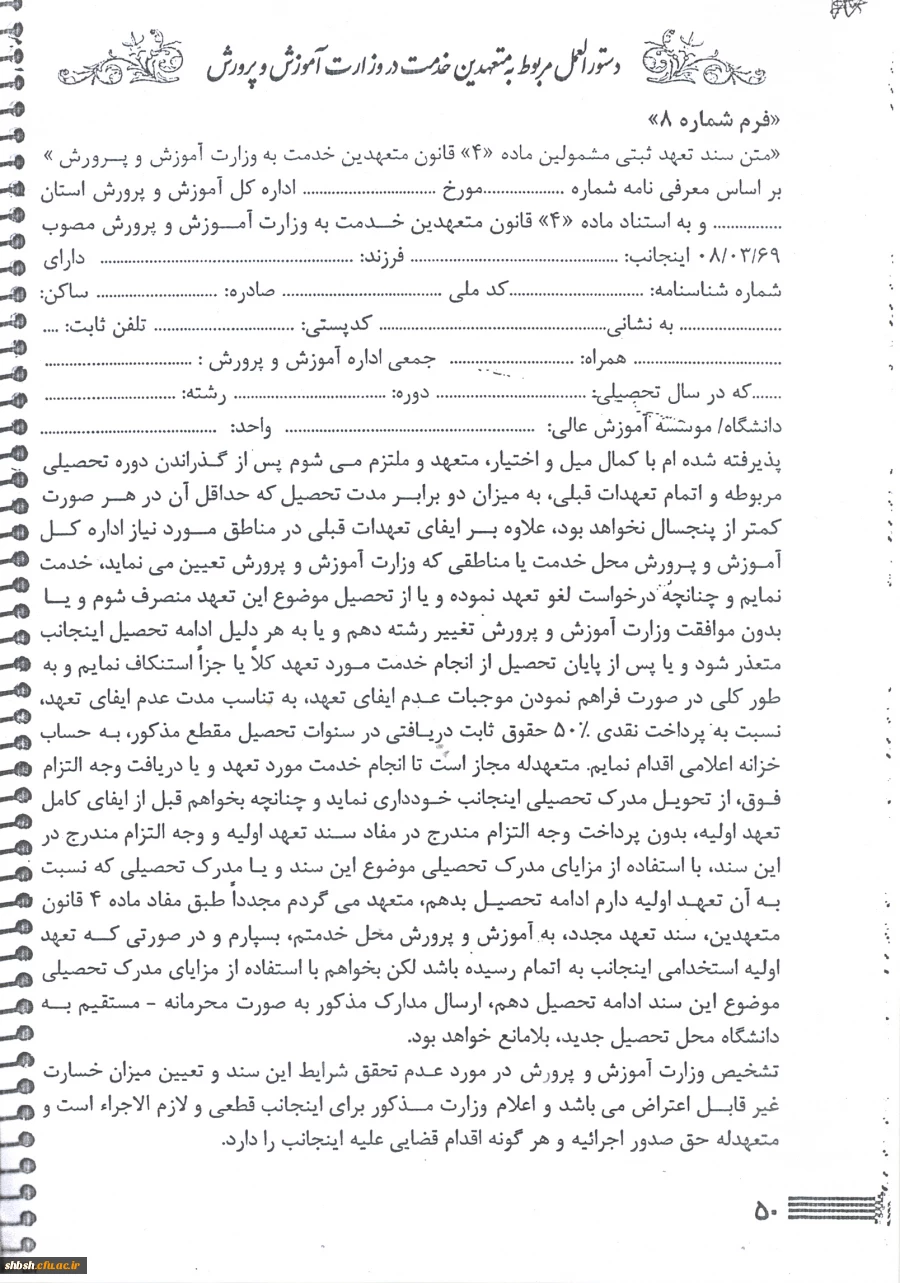 دستورالعمل مربوط به متعهدین خدمت در وزارت آموزش و پرورش
«فرم شماره ۸»
«متن سند تعهد ثبتی مشمولین ماده «۴» قانون متعهدین خدمت به وزارت آموزش و پرورش »
بر اساس معرفی نامه شماره ..................مورخ .............................. اداره کل آموزش و پرورش استان
............... و به استناد ماده «۴» قانون متعهدین خدمت به وزارت آموزش و پرورش مصوب
۰۸/۰۳/۶۹ اینجانب: .............................................. فرزند: ........................................................ دارای
شماره شناسنامه: ..............................کد ملی ................................... صادره: ........................... ساکن:
....................... به نشانی................................................... کدپستی: ............................... تلفن ثابت: ....
................................. همراه: ............................ جمعی اداره آموزش و پرورش : .................................
.......که در سال تحصیلی: ................................. دوره: .................................. رشته: .............................
دانشگاه/ موسسه آموزش عالی: ........................................................ واحد: .......................................
پذیرفته شده ام با کمال میل و اختیار، متعهد و ملتزم می شوم پس از گذراندن دوره تحصیلی
مربوطه و اتمام تعهدات قبلی، به میزان دو برابر مدت تحصیل که حداقل آن در هر صورت
کمتر از پنجسال نخواهد بود، علاوه بر ایفای تعهدات قبلی در مناطق مورد نیاز اداره کل
آموزش و پرورش محل خدمت یا مناطقی که وزارت آموزش و پرورش تعیین می نماید، خدمت
نمایم و چنانچه درخواست لغو تعهد نموده و یا از تحصیل موضوع این تعهد منصرف شوم و یا
بدون موافقت وزارت آموزش و پرورش تغییر رشته دهم و یا به هر دلیل ادامه تحصیل اینجانب
متعذر شود و یا پس از پایان تحصیل از انجام خدمت مورد تعهد کلاً یا جزاً استنکاف نمایم و به
طور کلی در صورت فراهم نمودن موجبات عدم ایفای تعهد، به تناسب مدت عدم ایفای تعهد،
نسبت به پرداخت نقدی ۵۰٪ حقوق ثابت دریافتی در سنوات تحصیل مقطع مذکور، به حساب
خزانه اعلامی اقدام نمایم. متعهدله مجاز است تا انجام خدمت مورد تعهد و یا دریافت وجه التزام
فوق، از تحویل مدرک تحصیلی اینجانب خودداری نماید و چنانچه بخواهم قبل از ایفای کامل
تعهد اولیه، بدون پرداخت وجه التزام مندرج در مفاد سند تعهد اولیه و وجه التزام مندرج در
این سند، با استفاده از مزایای مدرک تحصیلی موضوع این سند و یا مدرک تحصیلی که نسبت
به آن تعهد اولیه دارم ادامه تحصیل بدهم، متعهد می گردم مجدداً طبق مفاد ماده ۴ قانون
متعهدین، سند تعهد مجدد، به آموزش و پرورش محل خدمتم، بسپارم و در صورتی که تعهد
اولیه استخدامی اینجانب به اتمام رسیده باشد لکن بخواهم با استفاده از مزایای مدرک تحصیلی
موضوع این سند ادامه تحصیل دهم، ارسال مدارک مذکور به صورت محرمانه - مستقیم به
دانشگاه محل تحصیل جدید، بلامانع خواهد بود.
تشخیص وزارت آموزش و پرورش در مورد عدم تحقق شرایط این سند و تعیین میزان خسارت
غیر قابل اعتراض می باشد و اعلام وزارت مذکور برای اینجانب قطعی و لازم الاجراء است و
متعهدله حق صدور اجرائیه و هر گونه اقدام قضایی علیه اینجانب را دارد.
۵۰
shbsh.cfu.ac.ir